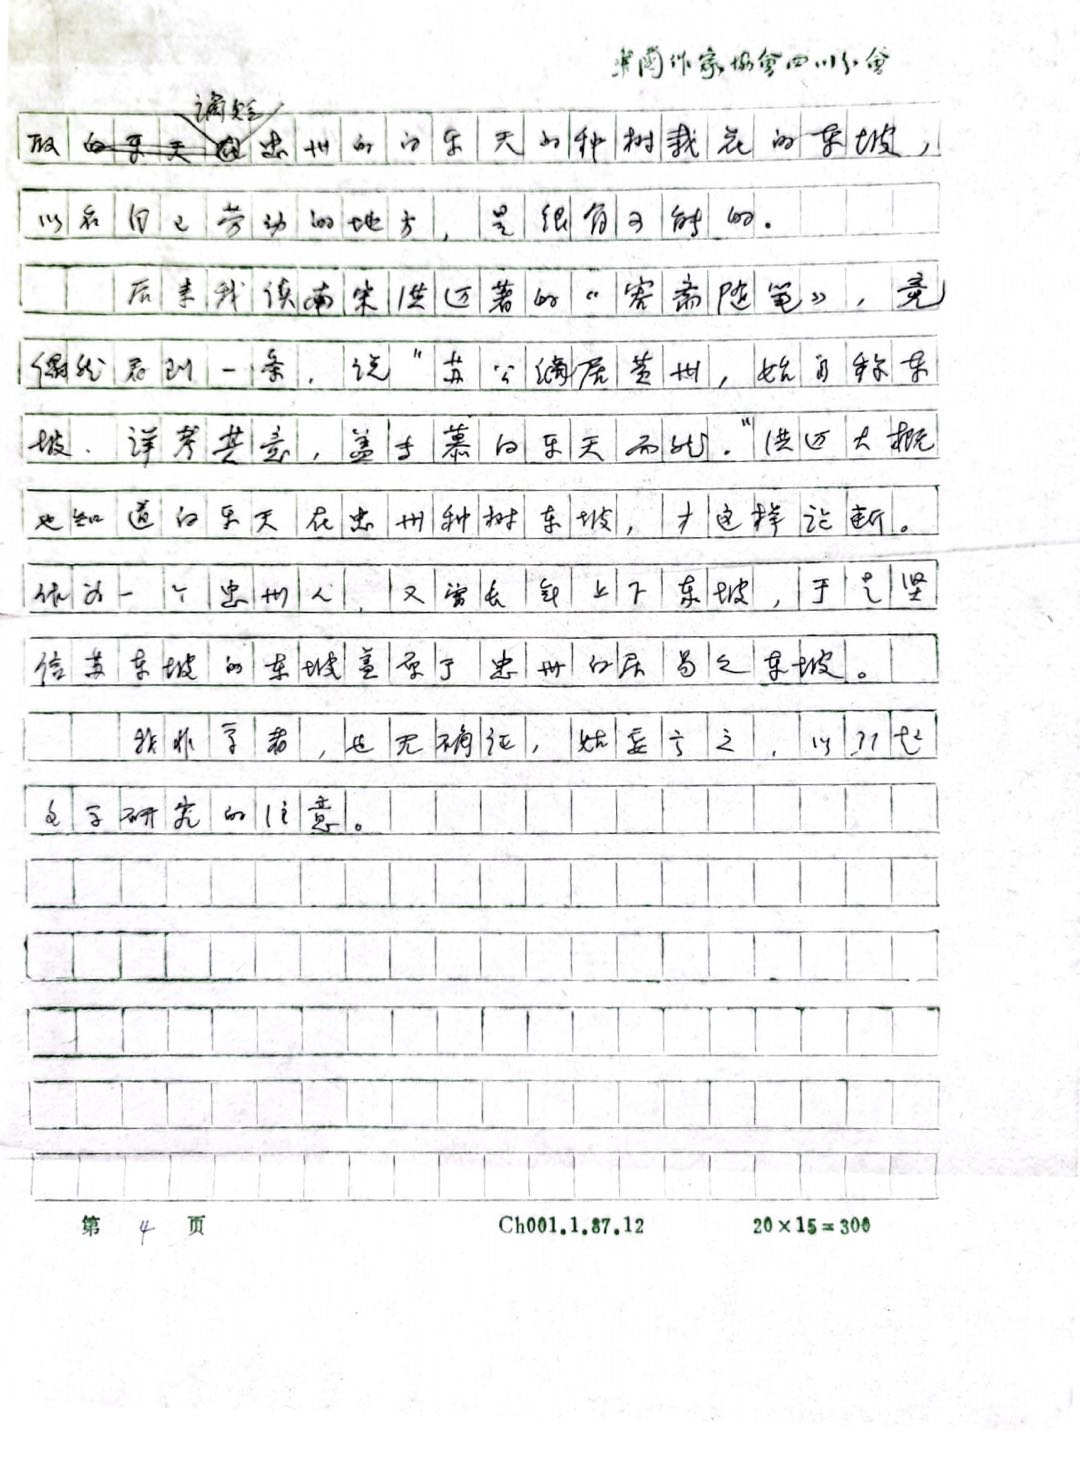 中國作家協會四川分會
谪贬
取白乐天在忠州的白乐天的种树栽花的东坡，
以名自己劳动的地方，是很有可能的.
后来我读南宋洪迈著的《容斋随笔》，竟
偶然看到一条，说"苏公谪居黄州，始自称东
坡．详考其意，盖专慕白乐天而然．"洪迈大概
也知道白乐天在忠州种树东坡，才这样论断。
作为一个忠州人，又曾长年上下东坡，于是坚
信苏东坡的东坡盖原于忠州白居易之东坡。
我非学者，也无确证，姑妄言之，以引起
文学研究的注意。
第 4 页
Ch001.1.87.12
20×15=300